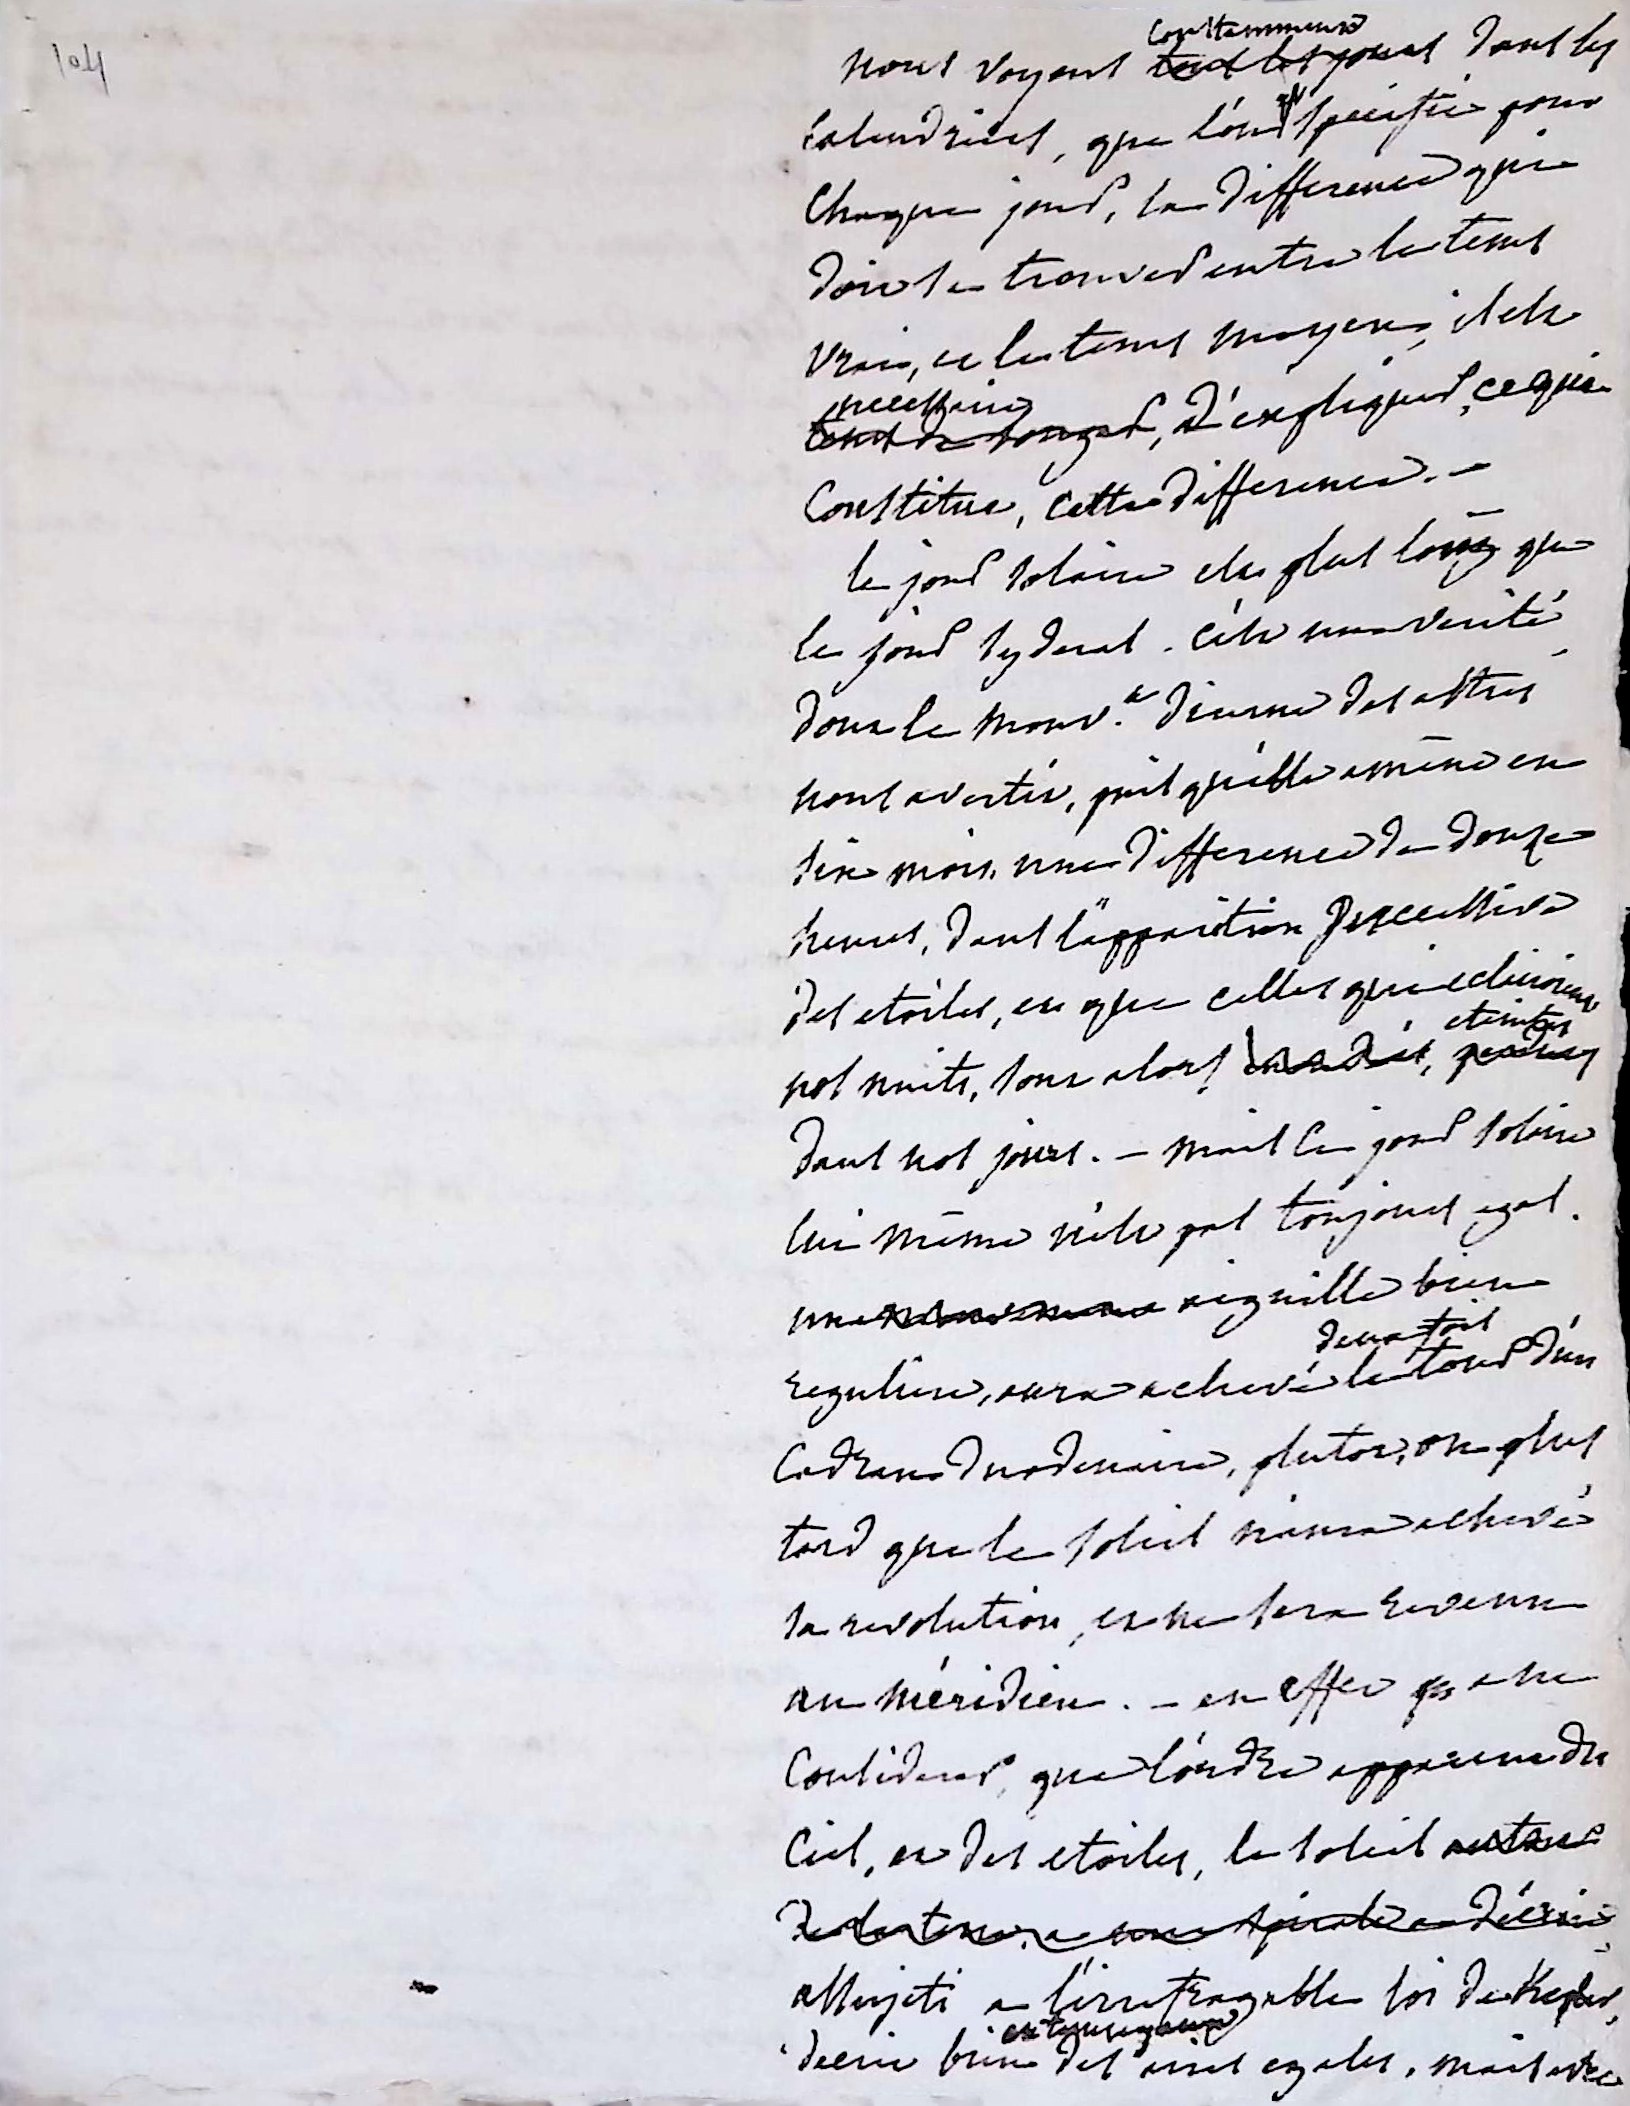 104
constamment
nous voyons tous les jours dans les
calendriers, que l'on spécifie pour
chaque jour, la difference qui
doit se trouver entre le tems
vrai, et le tems moyen, il est
necessaire
tems de songer, d'expliquer, ce qui
constitue, cette difference. -
le jour solaire est plus long que
le jour syderal. c'est une verité
dont le mouv.t diurne des astres
nous avertit, puis qu'elle amène en
six mois, une difference de douze
heures, dans l'apparition successive
des etoiles, et que celles qui eclairoient
eteintes
nos nuits, sont alors perdues
dans nos jours. - mais ce jour solaire
lui même n'est pas toujours egal.
une aiguille bien
deux fois
reguliere, aura achevé le tour d'un
cadran duodenaire, plutot, ou plus
tard que le soleil n'aura achevé
sa revolution, et ne sera revenu
au méridien. - en effet a ne
considerer, que l'ordre apparent du
ciel, et des etoiles, le soleil autour
de la terre, a une spirale a décrire,
assujeti a l'irrefragable loi de Kepler,
decrit bien des aires egales, mais avec